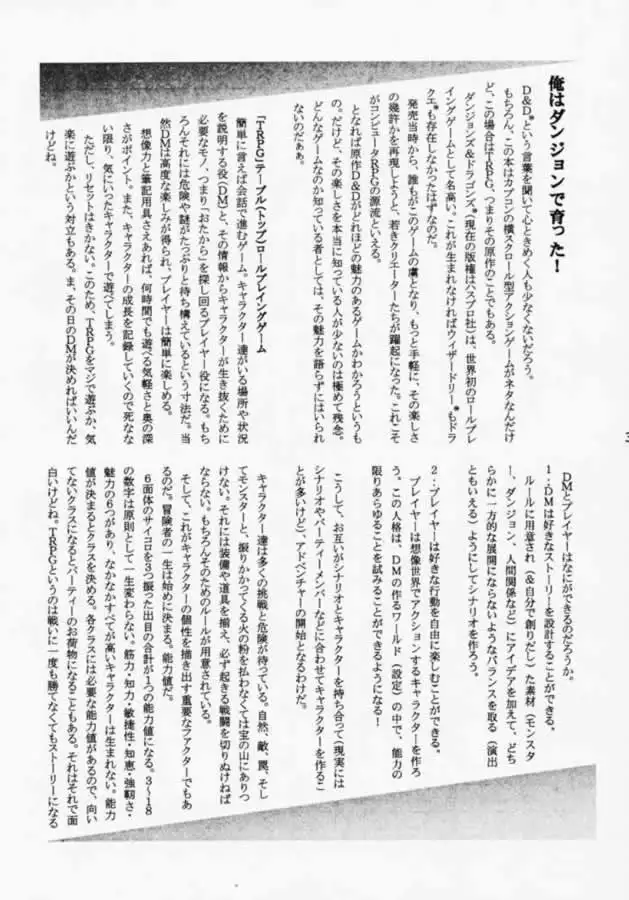 俺はダンジョンで育った！
D&D*という言葉を聞いて心ときめく人も少なくないだろう。
もちろん、この本はカプコンの横スクロール型アクションゲームがネタなんだけ
ど、この場合はTRPG、つまりその原作のことでもある。
ダンジョンズ&ドラゴンズ*（現在の版権はハスブロ社）は、世界初のロールプレ
イングゲームとして名高い。これが生まれなければウィザードリー*もドラ
クエ*も存在しなかったはずなのだ。
発売当時から、誰もがこのゲームの虜となり、もっと手軽に、その楽しさ
の幾許かを再現しようと、若きクリエーターたちが躍起になった。これこそ
がコンピュータRPGの源流といえる。
となれば原作D&Dがどれほどの魅力のあるゲームかわかろうというも
の。だけど、その楽しさを本当に知っている人が少ないのは極めて残念。
どんなゲームなのか知っている者としては、その魅力を語らずにはいられ
ないのだぁぁ。
「TRPG」テーブル（トップ）ロールプレイングゲーム
簡単に言えば会話で進むゲーム。キャラクター達がいる場所や状況
を説明する役（DM）と、その情報からキャラクターが生き抜くために
必要なモノ、つまり「おたから」を探し回るプレイヤー役になる。もち
ろんそれには危険や謎がたっぷりと待ち構えているという寸法だ。当
然DMは高度な楽しみが得られ、プレイヤーは簡単に楽しめる。
想像力と筆記用具さえあれば、何時間でも遊べる気軽さと奥の深
さがポイント。また、キャラクターの成長を記録していくので死なな
い限り、気にいったキャラクターで遊べてしまう。
ただし、リセットはきかない。このため、TRPGをマジで遊ぶか、気
楽に遊ぶかという対立もある。ま、その日のDMが決めればいいんだ
けどね。
DMとプレイヤーはなにができるのだろうか。
1：DMは好きなストーリーを設計することができる。
ルールに用意され（&自分で創りだし）た素材（モンスタ
ー、ダンジョン、人間関係など）にアイデアを加えて、どち
らかに一方的な展開にならないようなバランスを取る（演出
ともいえる）ようにしてシナリオを作ろう。
2：プレイヤーは好きな行動を自由に楽しむことができる。
プレイヤーは想像世界でアクションするキャラクターを作ろ
う。この人格は、DMの作るワールド（設定）の中で、能力の
限りあらゆることを試みることができるようになる！
こうして、お互いがシナリオとキャラクターを持ち合って（現実には
シナリオやパーティーメンバーなどに合わせてキャラクターを作るこ
とが多いけど）、アドベンチャーの開始となるわけだ。
キャラクター達は多くの挑戦と危険が待っている。自然、敵、罠、そし
てモンスターと、振りかかってくる火の粉を払わなくては宝の山にありつ
けない。それには装備や道具を揃え、必ず起きる戦闘を切りぬけねば
ならない。もちろんそのためのルールが用意されている。
そして、これがキャラクターの個性を描き出す重要なファクターでもあ
るのだ。冒険者の一生は始めに決まる。能力値だ。
6面体のサイコロを3つ振った出目の合計が1つの能力値になる。3〜18
の数字は原則として一生変わらない。筋力・知力・敏捷性・知恵・強靭さ・
魅力の6つがあり、なかなかすべてが高いキャラクターは生まれない。能力
値が決まるとクラスを決める。各クラスには必要な能力値があるので、向い
てないクラスになるとパーティーのお荷物になることもある。それはそれで面
白いけどね。TRPGというのは戦いに一度も勝てなくてもストーリーになる